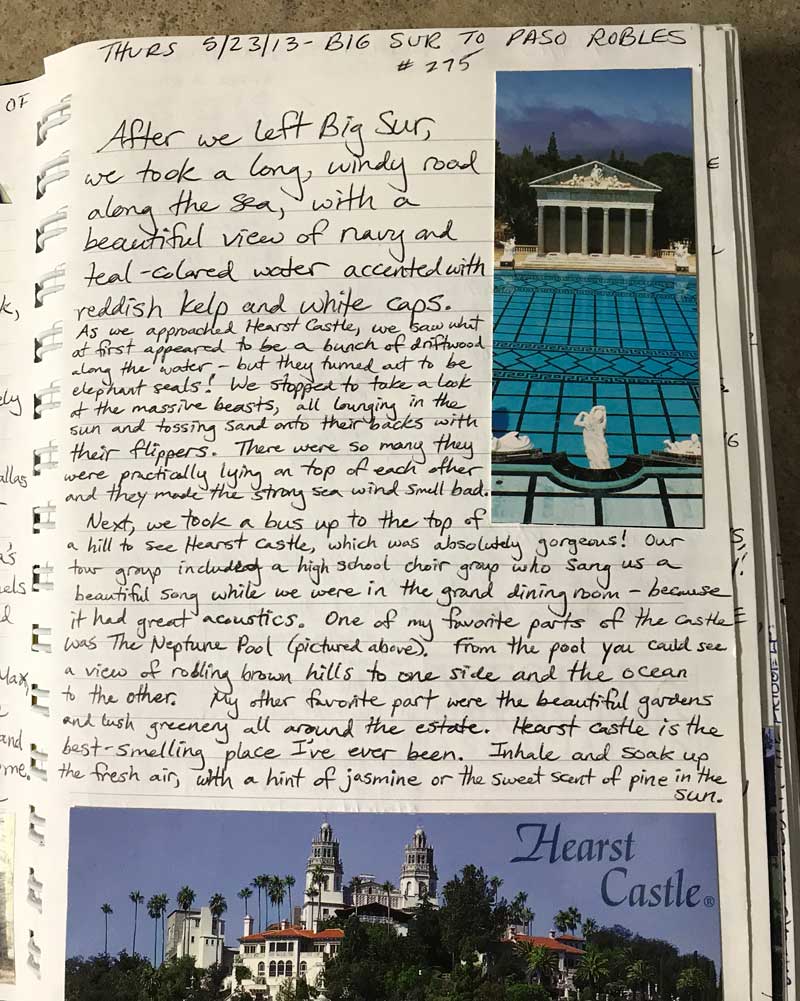 THURS 5/23/13 - BIG SUR TO PASO ROBLES
# 275
After we left Big Sur,
we took a long, windy road
along the sea, with a
beautiful view of navy and
teal-colored water accented with
reddish kelp and white caps.
As we approached Hearst Castle, we saw what
at first appeared to be a bunch of driftwood
along the water - but they turned out to be
elephant seals! We stopped to take a look
at the massive beasts, all lounging in the
sun and tossing sand onto their backs with
their flippers. There were so many they
were practically lying on top of each other
and they made the strong sea wind smell bad.
Next, we took a bus up to the top of
a hill to see Hearst Castle, which was absolutely gorgeous! Our
tour group included a high school choir group who sang us a
beautiful song while we were in the grand dining room - because
it had great acoustics. One of my favorite parts of the castle
was The Neptune Pool (pictured above). From the pool you could see
a view of rolling brown hills to one side and the ocean
to the other. My other favorite part were the beautiful gardens
and lush greenery all around the estate. Hearst Castle is the
best-smelling place I've ever been. Inhale and soak up
the fresh air, with a hint of jasmine or the sweet scent of pine in the
sun.
Hearst
Castle®
OF
and